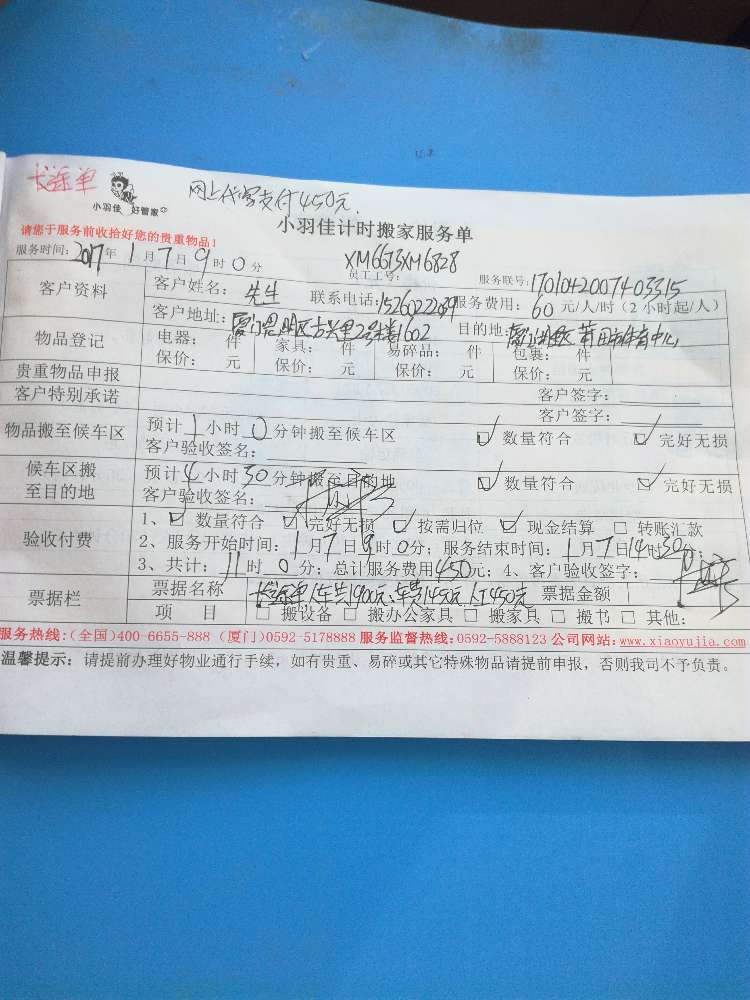 长途单
小羽佳 好管家
网上代客支付450元
请您于服务前收拾好您的贵重物品!
小羽佳计时搬家服务单
服务时间: 2017年1月7日9时0分
XM6673XM6828
员工工号:
服务联号: 1701042007403315
客户资料
客户姓名: 先生 联系电话: 服务费用: 60元/人/时(2小时起/人)
客户地址: 厦门思明区古兴里2号楼1602 目的地: 莆田市体育中心
物品登记
电器: 件 家具: 件 易碎品: 件 包裹: 件
保价: 元 保价: 元 保价: 元 保价: 元
贵重物品申报
客户签字:
客户特别承诺
客户签字:
物品搬至候车区
预计1小时0分钟搬至候车区 ☑数量符合 ☑完好无损
客户验收签名:
候车区搬至目的地
预计4小时30分钟搬至目的地 ☑数量符合 ☑完好无损
客户验收签名:
验收付费
1、☑数量符合 ☑完好无损 ☑按需归位 ☑现金结算 □转账汇款
2、服务开始时间: 1月7日9时0分; 服务结束时间: 1月7日14时30分;
3、共计: 11时0分; 总计服务费用450元; 4、客户验收签字:
票据栏
票据名称 长途单人车共1900元:车费1450元,人工450元 票据金额
项目 □搬设备 □搬办公家具 □搬家具 □搬书 □其他:
服务热线:(全国)400-6655-888 (厦门)0592-5178888 服务监督热线:0592-5888123 公司网站:www.xiaoyujia.com
温馨提示: 请提前办理好物业通行手续,如有贵重、易碎或其它特殊物品请提前申报,否则我司不予负责。